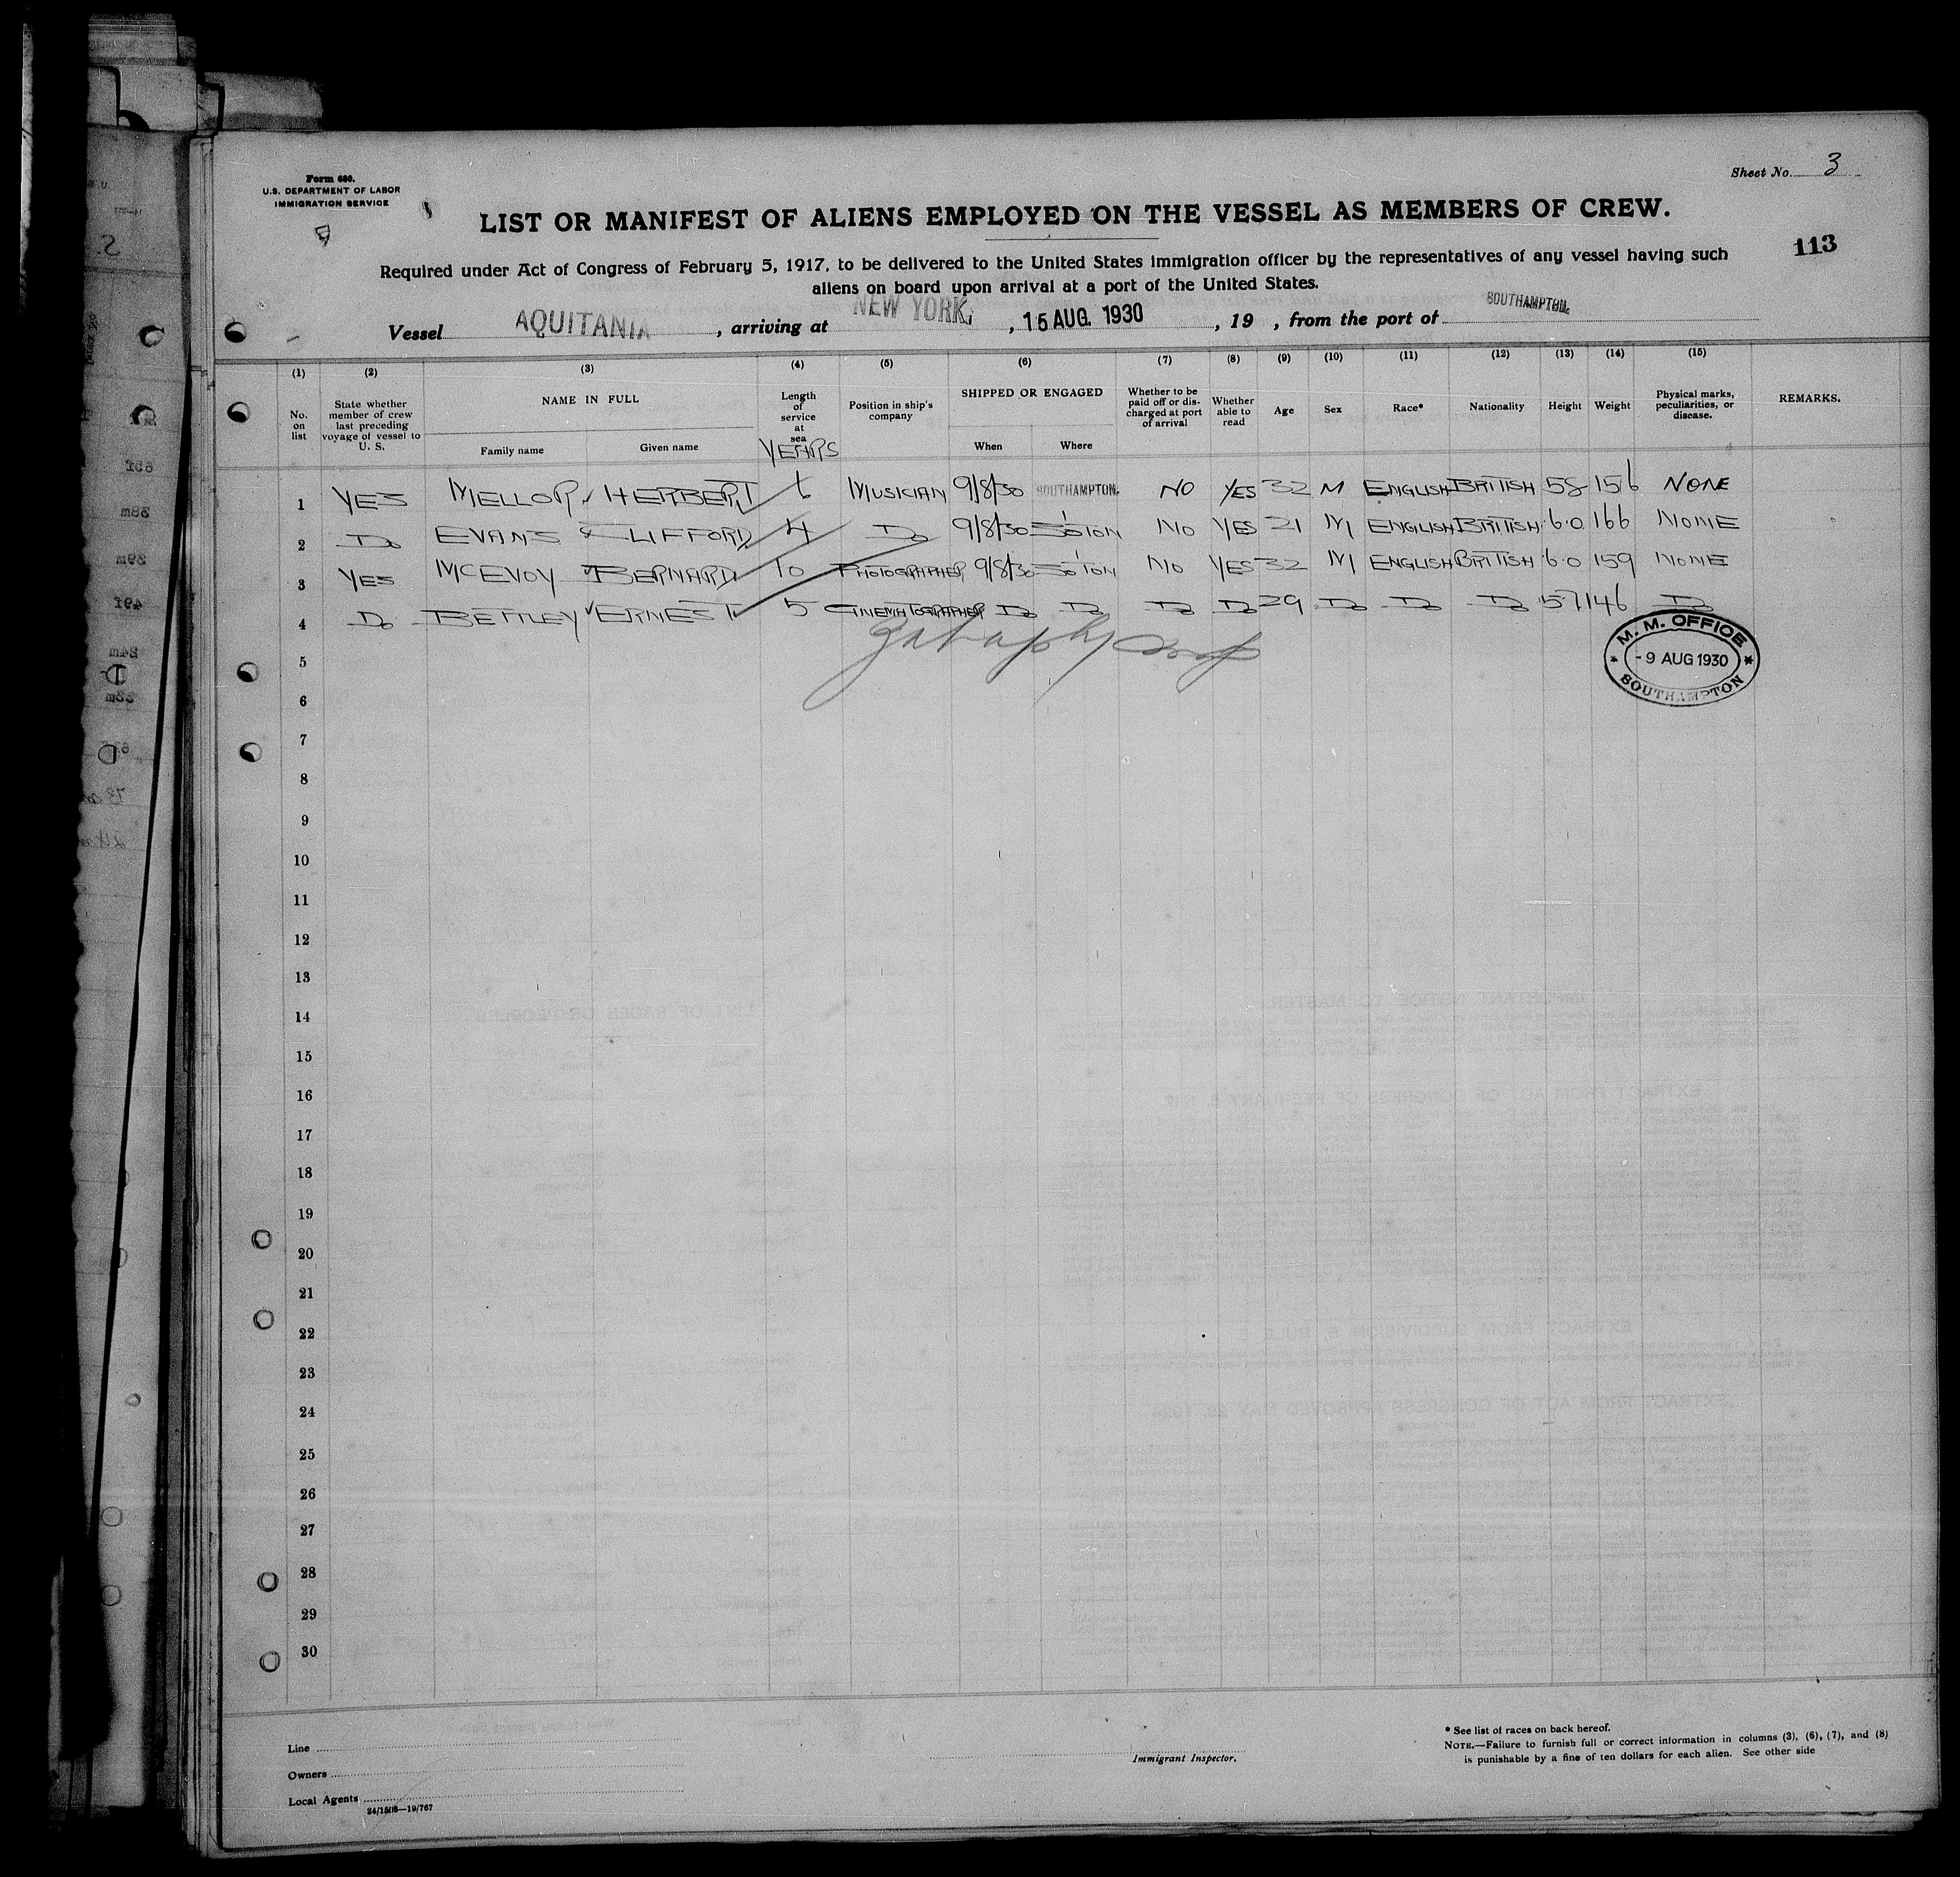 Form 680.
U.S. DEPARTMENT OF LABOR
IMMIGRATION SERVICE
Sheet No. 3
LIST OR MANIFEST OF ALIENS EMPLOYED ON THE VESSEL AS MEMBERS OF CREW.
113
Required under Act of Congress of February 5, 1917, to be delivered to the United States immigration officer by the representatives of any vessel having such
aliens on board upon arrival at a port of the United States.
Vessel AQUITANIA, arriving at NEW YORK, 15 AUG. 1930, 19 , from the port of SOUTHAMPTON.
(1) (2) (3) (4) (5) (6) (7) (8) (9) (10) (11) (12) (13) (14) (15)
No. on list
State whether member of crew last preceding voyage of vessel to U. S.
NAME IN FULL
Family name Given name
Length of service at sea
YEARS
Position in ship's company
SHIPPED OR ENGAGED
When Where
Whether to be paid off or discharged at port of arrival
Whether able to read
Age
Sex
Race*
Nationality
Height
Weight
Physical marks, peculiarities, or disease.
REMARKS.
1 YES MELLOR HERBERT MUSICIAN 9/8/30 SOUTHAMPTON. NO YES 32 M ENGLISH BRITISH 58 156 NONE
2 Do EVANS CLIFFORD 4 Do 9/8/30 SO'TON NO YES 21 M ENGLISH BRITISH 6.0 166 NONE
3 YES MCEVOY BERNARD 10 PHOTOGRAPHER 9/8/30 SO'TON NO YES 32 M ENGLISH BRITISH 6.0 159 NONE
4 Do BETTLEY ERNEST 5 CINEMATOGRAPHER Do Do Do Do 29 Do Do Do 5.7 146 Do
M. M. OFFICE
- 9 AUG 1930
SOUTHAMPTON
5
6
7
8
9
10
11
12
13
14
15
16
17
18
19
20
21
22
23
24
25
26
27
28
29
30
Line
Owners
Local Agents
24/1508—19/767
Immigrant Inspector.
* See list of races on back hereof.
NOTE.—Failure to furnish full or correct information in columns (3), (6), (7), and (8)
is punishable by a fine of ten dollars for each alien. See other side